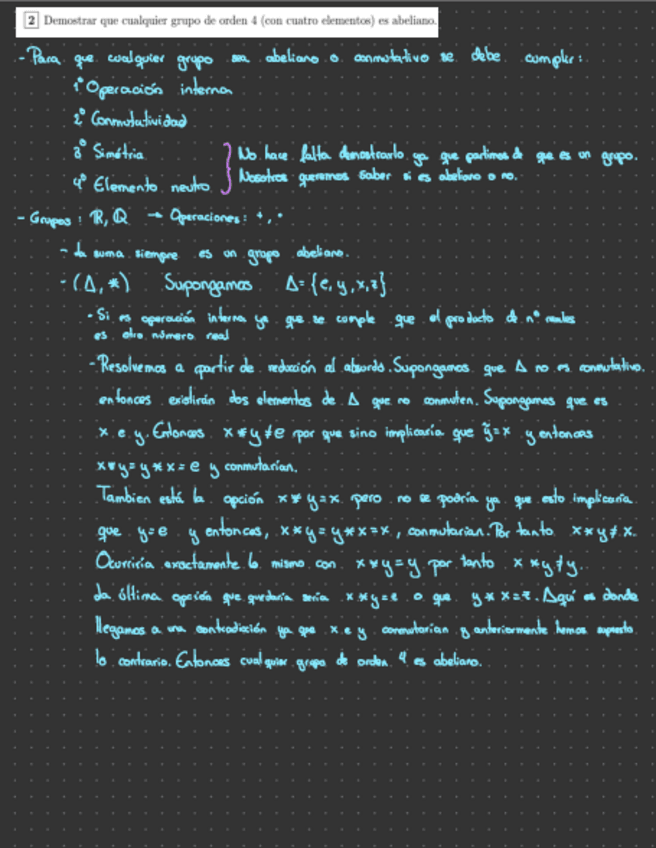 2 Demostrar que cualquier grupo de orden 4 (con cuatro elementos) es abeliano.
- Para que cualquier grupo sea abeliano o conmutativo se debe cumplir:
1º Operación interna
2º Conmutatividad
3º Simétria
4º Elemento neutro
No hace falta demostrarlo ya que partimos de que es un grupo.
Nosotros queremos saber si es abeliano o no.
- Grupos: ℝ, ℚ → Operaciones: +, ·
- La suma siempre es un grupo abeliano.
- (A, *) Supongamos A = {e, y, x, z}
- Si es operación interna ya que se cumple que el producto de nº reales
es otro número real
- Resolvemos a partir de reducción al absurdo. Supongamos que A no es conmutativo,
entonces existirán dos elementos de A que no conmuten. Supongamos que es
x e y. Entonces x * y ≠ e por que sino implicaría que ỹ = x y entonces
x * y = y * x = e y conmutarían.
Tambien está la opción x * y = x pero no se podría ya que esto implicaría
que y = e y entonces, x * y = y * x = x, conmutarían. Por tanto x * y ≠ x.
Ocurriría exactamente lo mismo con x * y = y por tanto x * y ≠ y.
La última opción que quedaría sería x * y = z o que y * x = z. Aquí es donde
llegamos a una contradicción ya que x e y conmutarían y anteriormente hemos supuesto
lo contrario. Entonces cualquier grupo de orden 4 es abeliano.